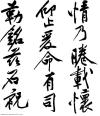 情乃眷載懷
仰止爰命有司
勒銘茲石祝